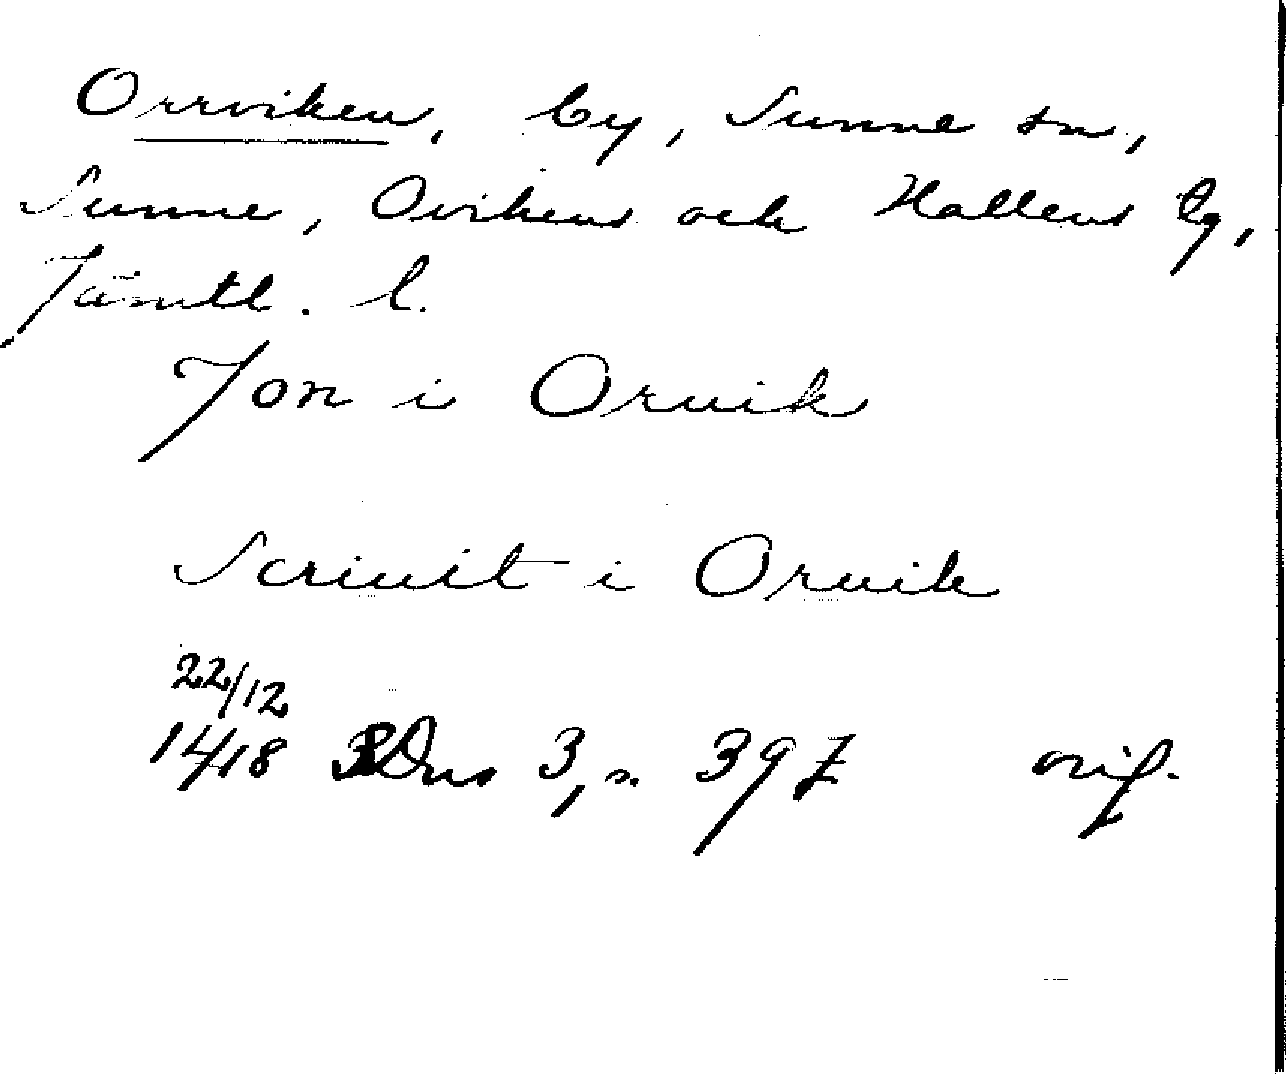 Orrviken, by, Sunne sn,
Sunne, Ovikens och Hallens tg,
Jämtl. l.
Jon i Oruik
Scriuit i Oruik
22/12
1418 Dns 3, n. 397 orig.